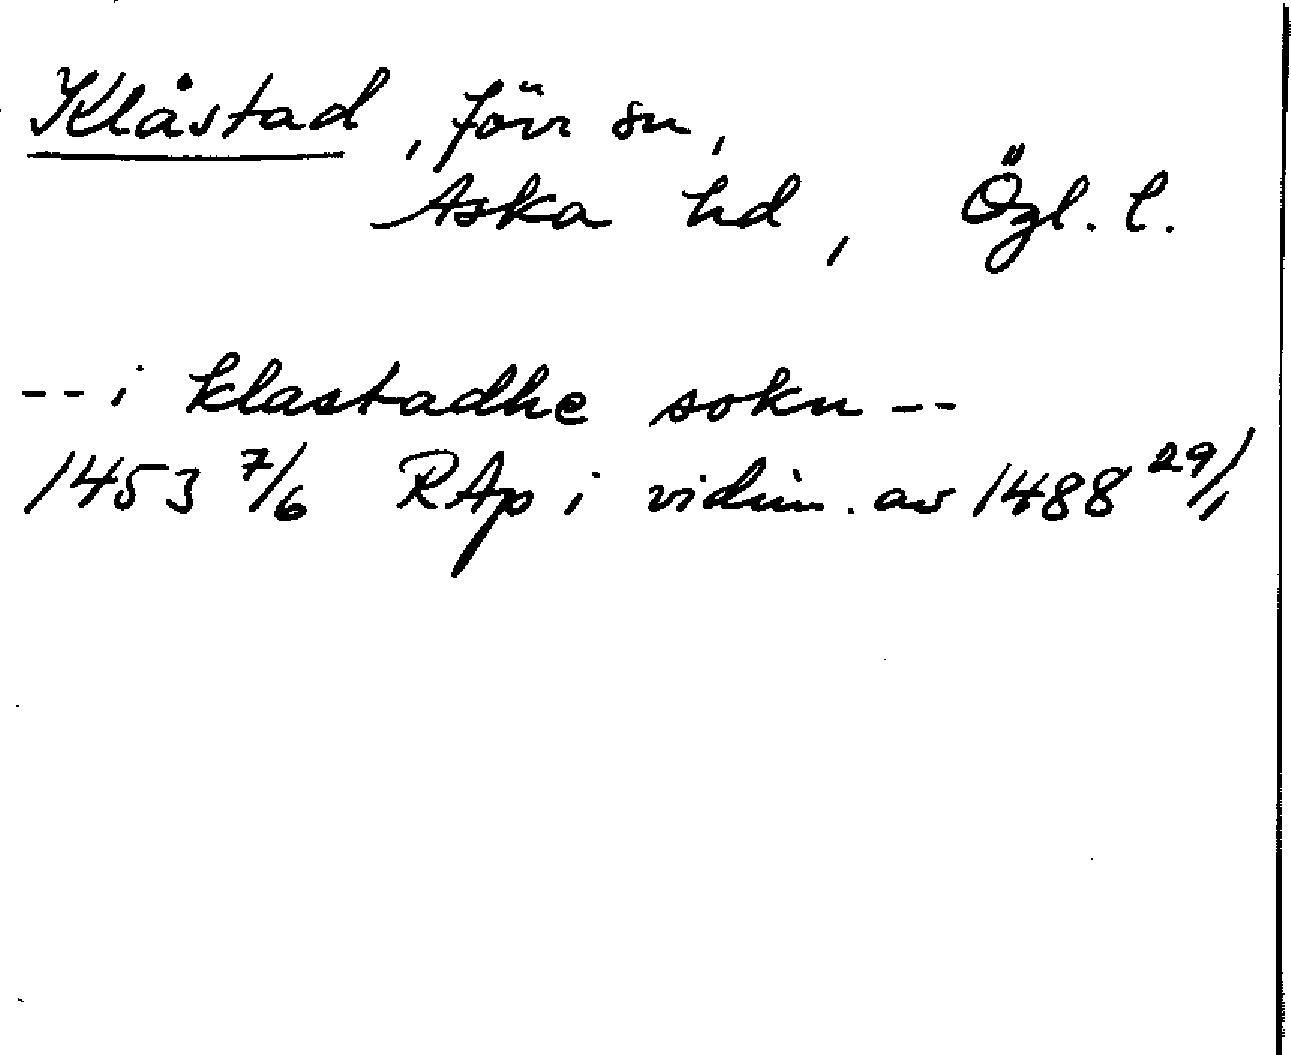 Klåstad, förr sn,
Aska hd, Ögl. l.
-- i klastadhe sokn --
1453 7/6 RAp i vidim. av 1488 29/1